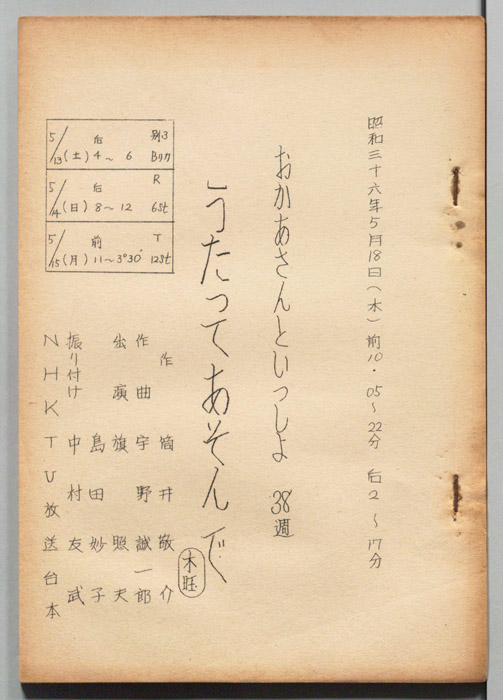 昭和三十六年5月18日(木)前10.05〜22分 后2〜17分
おかあさんといっしよ 38週
「うたってあそんで
木班
作 筒井敬介
作曲 宇野誠一郎
出演 旗照夫
島田妙子
振り付け 中村友武
NHKTV放送台本
5/13(土) 后4〜6 別3Bリカ
5/14(日) 后8〜12 R6st
5/15(月) 前11〜3°30' T12st